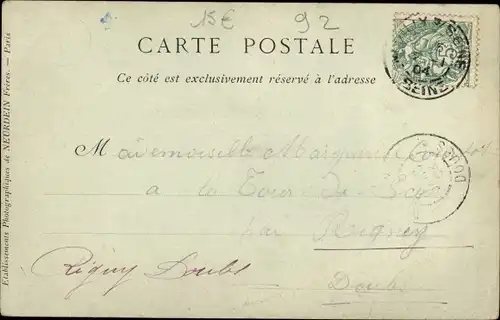 15€ 92
CARTE POSTALE
Ce côté est exclusivement réservé à l'adresse
Mademoiselle Marguerite
à la Tour de Scay
par Rigney
Doubs
Rigny Doubs
SEINE
04
SEINE
DOUBS
Etablissements Photographiques de NEURDEIN Frères. — Paris